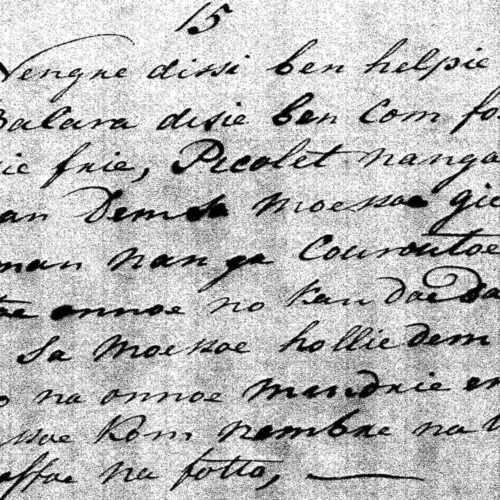 15
Nengre dissi ben helpie
Balara disie ben Com fo
sie frie, Picolet nanga
Dem sa moessoe gie
man nanga Couroutoe
annoe no kan doe
Sa Moessoe hollie dem
na annoe mandrie
Kom nembre na
na fotto,